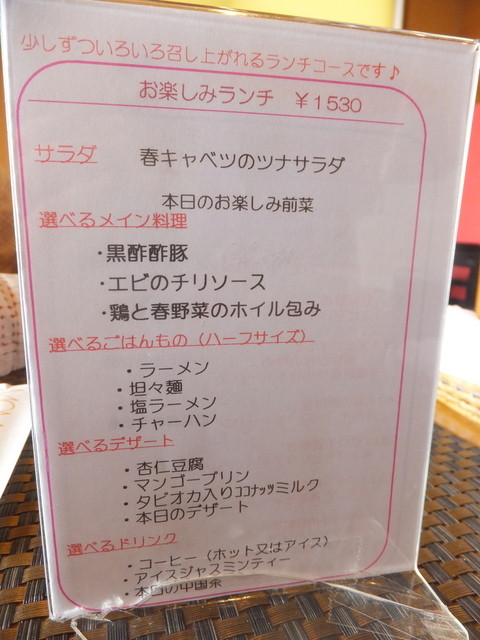 少しずついろいろ召し上がれるランチコースです♪
お楽しみランチ ￥1530
サラダ 春キャベツのツナサラダ
本日のお楽しみ前菜
選べるメイン料理
・黒酢酢豚
・エビのチリソース
・鶏と春野菜のホイル包み
選べるごはんもの（ハーフサイズ）
・ラーメン
・坦々麺
・塩ラーメン
・チャーハン
選べるデザート
・杏仁豆腐
・マンゴープリン
・タピオカ入りｺｺﾅｯﾂミルク
・本日のデザート
選べるドリンク
・コーヒー（ホット又はアイス）
・アイスジャスミンティー
・本日の中国茶